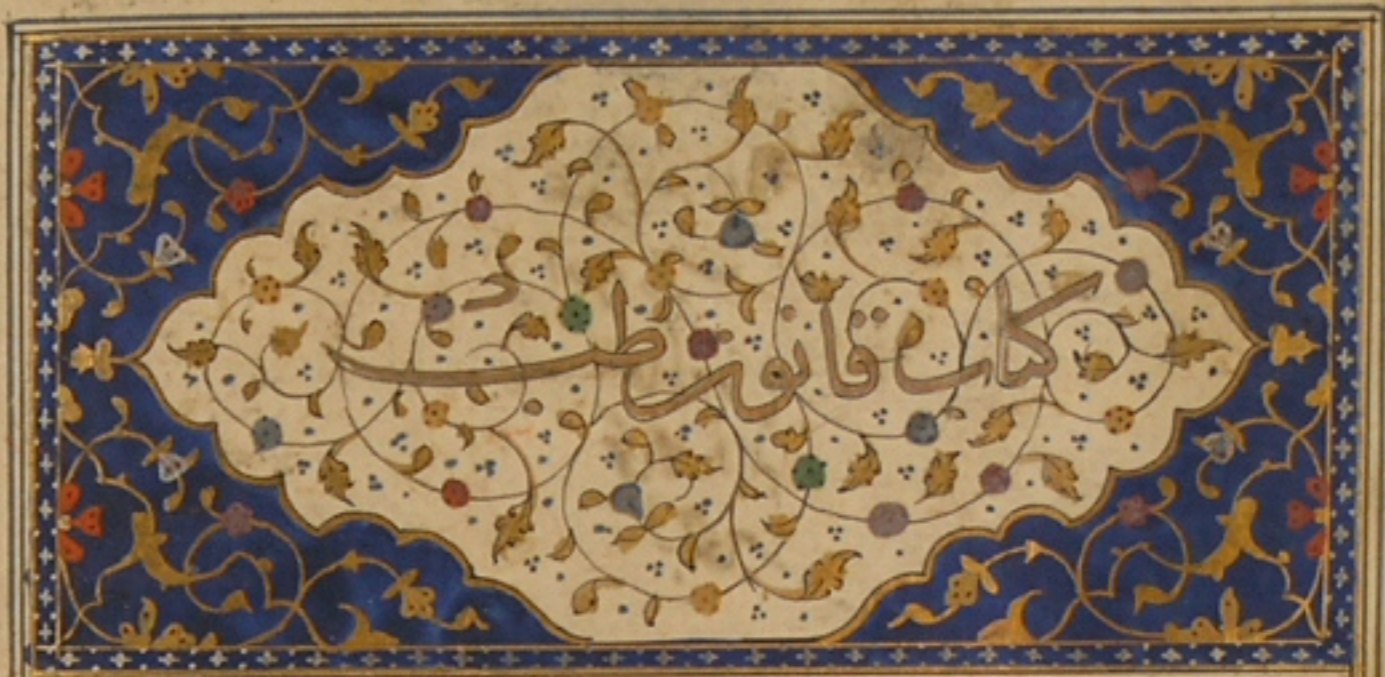 كتاب قانون طب